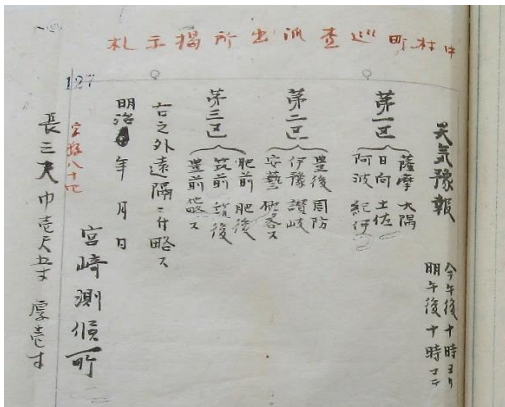 村町巡査派出所掲示札
127
天気豫報
今午後十時ヨリ
明午後十時マテ
第一区
薩摩 大隅
日向 土佐
阿波 紀伊
第二区
豊後 周防
伊豫 讃岐
安藝
第三区
肥前 肥後
筑前 筑後
豊前 他略ス
右之外遠隔ニ付略ス
明治 年 月 日
宮崎測候所
長三尺巾壱尺五寸 厚壱寸